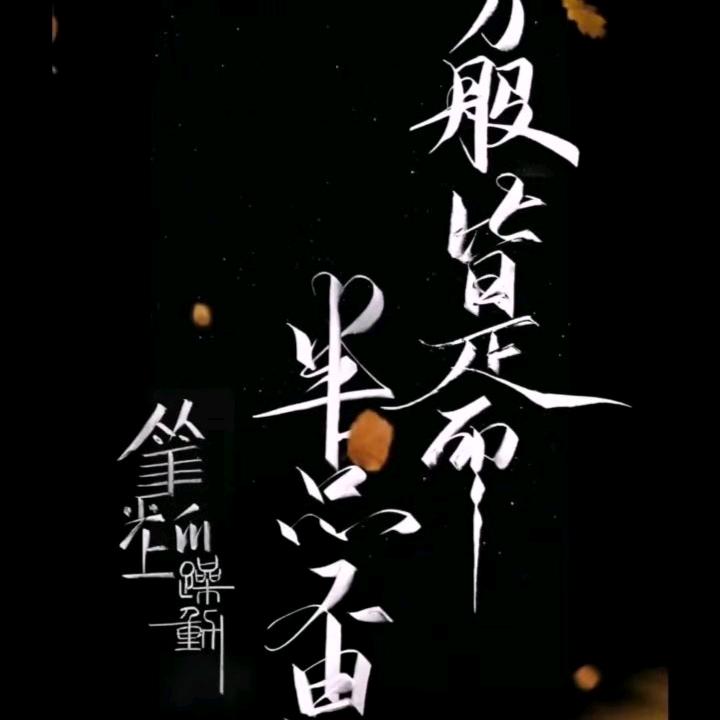 万般皆是命
半点不由
筆尖上的躁動